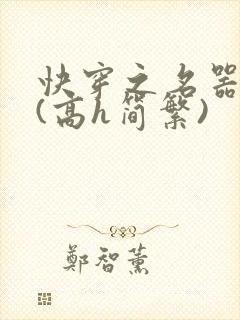 快穿之名器
(高h简繁)
鄭智薰